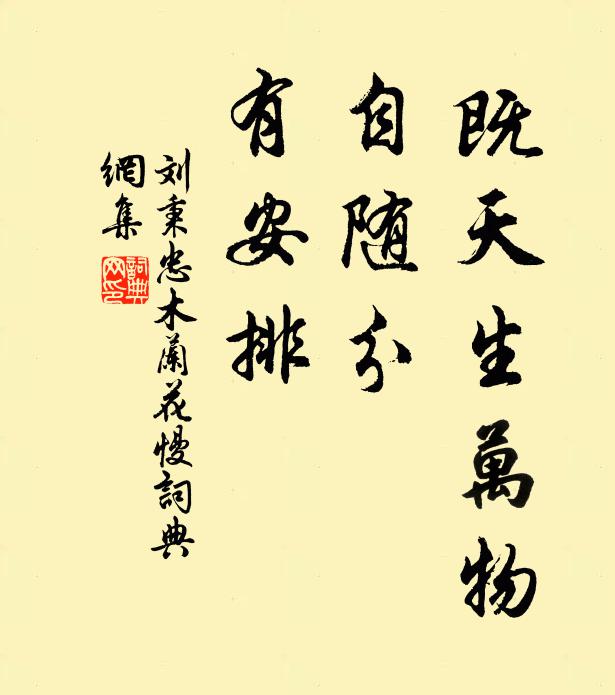 既天生萬物
自随分
有安排
刘秉忠木蘭花慢詞典
網集
詞典
网印